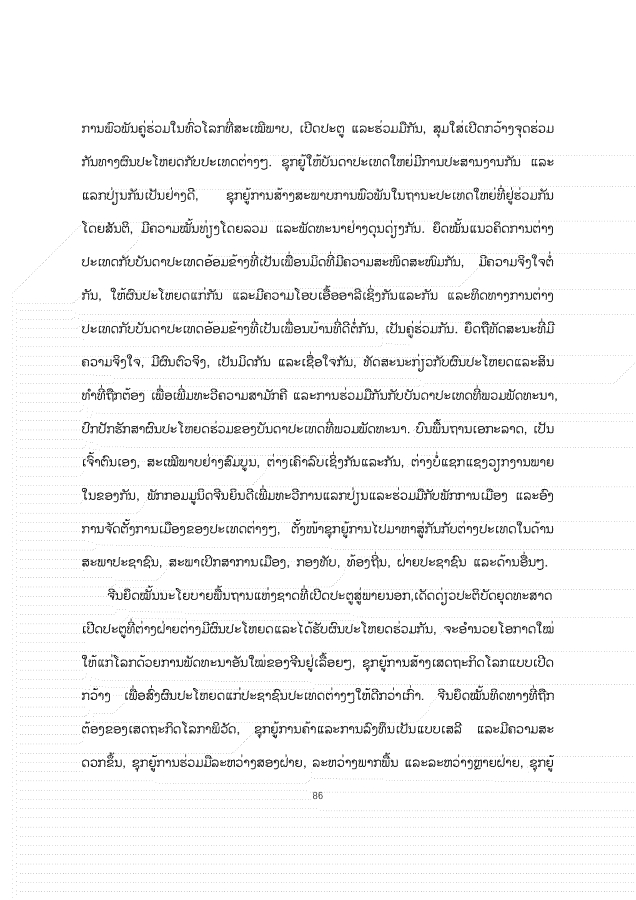 ການພົວພັນຄູ່ຮ່ວມໃນທົ່ວໂລກທີ່ສະເໝີພາບ, ເປີດປະຕູ ແລະຮ່ວມມືກັນ, ສຸມໃສ່ເປີດກວ້າງຈຸດຮ່ວມ
ກັນທາງຜົນປະໂຫຍດກັບປະເທດຕ່າງໆ. ຊຸກຍູ້ໃຫ້ບັນດາປະເທດໃຫຍ່ມີການປະສານງານກັນ ແລະ
ແລກປ່ຽນກັນເປັນຢ່າງດີ, ຊຸກຍູ້ການສ້າງສະພາບການພົວພັນໃນຖານະປະເທດໃຫຍ່ທີ່ຢູ່ຮ່ວມກັນ
ໂດຍສັນຕິ, ມີຄວາມໝັ້ນທ່ຽງໂດຍລວມ ແລະພັດທະນາຢ່າງດຸນດ່ຽງກັນ. ຍຶດໝັ້ນແນວຄິດການຕ່າງ
ປະເທດກັບບັນດາປະເທດອ້ອມຂ້າງທີ່ເປັນເພື່ອນມິດທີ່ມີຄວາມສະໜິດສະໜົມກັນ, ມີຄວາມຈິງໃຈຕໍ່
ກັນ, ໃຫ້ຜົນປະໂຫຍດແກ່ກັນ ແລະມີຄວາມໂອບເອື້ອອາລີເຊິ່ງກັນແລະກັນ ແລະທິດທາງການຕ່າງ
ປະເທດກັບບັນດາປະເທດອ້ອມຂ້າງທີ່ເປັນເພື່ອນບ້ານທີ່ດີຕໍ່ກັນ, ເປັນຄູ່ຮ່ວມກັນ. ຍຶດຖືທັດສະນະທີ່ມີ
ຄວາມຈິງໃຈ, ມີຜົນຕົວຈິງ, ເປັນມິດກັນ ແລະເຊື່ອໃຈກັນ, ທັດສະນະກ່ຽວກັບຜົນປະໂຫຍດແລະສິນ
ທຳທີ່ຖືກຕ້ອງ ເພື່ອເພີ່ມທະວີຄວາມສາມັກຄີ ແລະການຮ່ວມມືກັນກັບບັນດາປະເທດທີ່ພວມພັດທະນາ,
ປົກປັກຮັກສາຜົນປະໂຫຍດຮ່ວມຂອງບັນດາປະເທດທີ່ພວມພັດທະນາ. ບົນພື້ນຖານເອກະລາດ, ເປັນ
ເຈົ້າຕົນເອງ, ສະເໝີພາບຢ່າງສົມບູນ, ຕ່າງເຄົາລົບເຊິ່ງກັນແລະກັນ, ຕ່າງບໍ່ແຊກແຊງວຽກງານພາຍ
ໃນຂອງກັນ, ພັກກອມມູນິດຈີນຍິນດີເພີ່ມທະວີການແລກປ່ຽນແລະຮ່ວມມືກັບພັກການເມືອງ ແລະອົງ
ການຈັດຕັ້ງການເມືອງຂອງປະເທດຕ່າງໆ, ຕັ້ງໜ້າຊຸກຍູ້ການໄປມາຫາສູ່ກັນກັບຕ່າງປະເທດໃນດ້ານ
ສະພາປະຊາຊົນ, ສະພາເປິກສາການເມືອງ, ກອງທັບ, ທ້ອງຖິ່ນ, ຝ່າຍປະຊາຊົນ ແລະດ້ານອື່ນໆ.
ຈີນຍຶດໝັ້ນນະໂຍບາຍພື້ນຖານແຫ່ງຊາດທີ່ເປີດປະຕູສູ່ພາຍນອກ,ເດັດດ່ຽວປະຕິບັດຍຸດທະສາດ
ເປີດປະຕູທີ່ຕ່າງຝ່າຍຕ່າງມີຜົນປະໂຫຍດແລະໄດ້ຮັບຜົນປະໂຫຍດຮ່ວມກັນ, ຈະອຳນວຍໂອກາດໃໝ່
ໃຫ້ແກ່ໂລກດ້ວຍການພັດທະນາອັນໃໝ່ຂອງຈີນຢູ່ເລື້ອຍໆ, ຊຸກຍູ້ການສ້າງເສດຖະກິດໂລກແບບເປີດ
ກວ້າງ ເພື່ອສົ່ງຜົນປະໂຫຍດແກ່ປະຊາຊົນປະເທດຕ່າງໆໃຫ້ດີກວ່າເກົ່າ. ຈີນຍຶດໝັ້ນທິດທາງທີ່ຖືກ
ຕ້ອງຂອງເສດຖະກິດໂລກາພິວັດ, ຊຸກຍູ້ການຄ້າແລະການລົງທຶນເປັນແບບເສລີ ແລະມີຄວາມສະ
ດວກຂຶ້ນ, ຊຸກຍູ້ການຮ່ວມມືລະຫວ່າງສອງຝ່າຍ, ລະຫວ່າງພາກພື້ນ ແລະລະຫວ່າງຫຼາຍຝ່າຍ, ຊຸກຍູ້
86